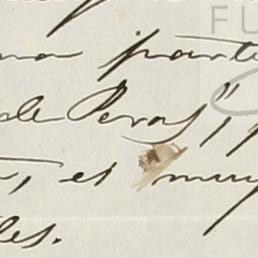 na parte
de Peras",
es muy
les.